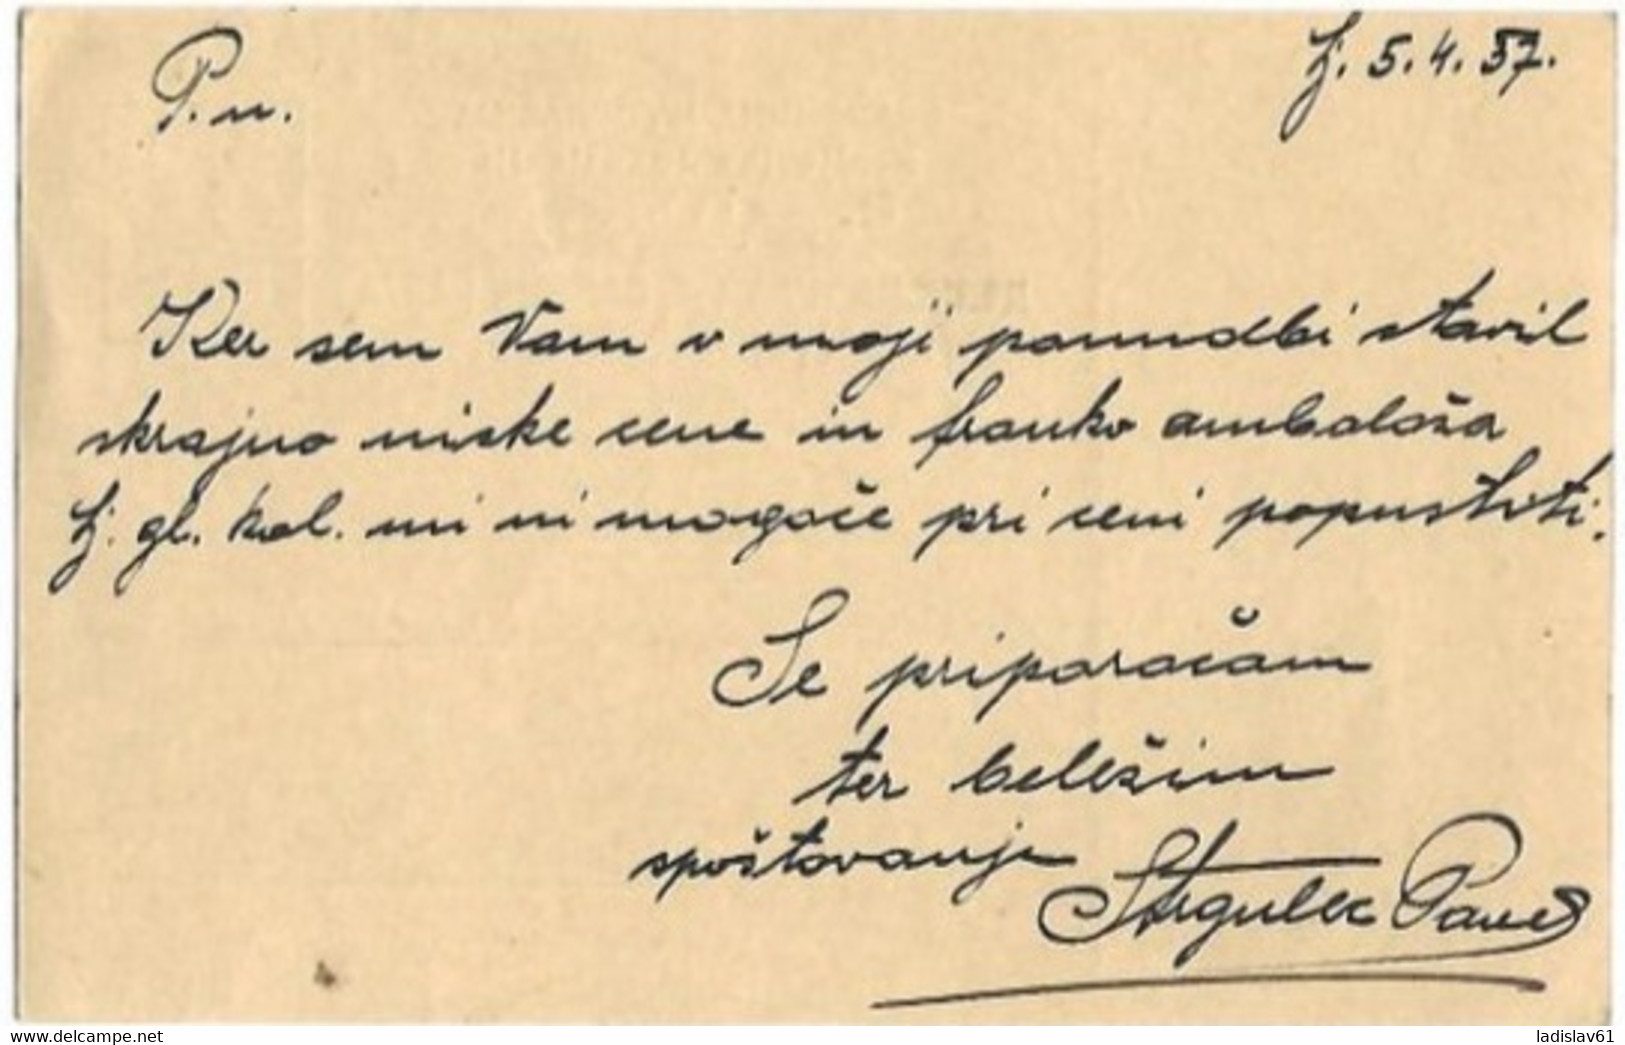 Lj. 5.4.37.
P. n.
Ker sem Vam v moji ponudbi stavil
skrajno niske cene in franko ambalaža
Lj. gl. kol. mi ni mogoče pri ceni popustiti.
Se priporočam
ter beležim
spoštovanje
Strgulec Pavel
www.delcampe.net
ladislav61